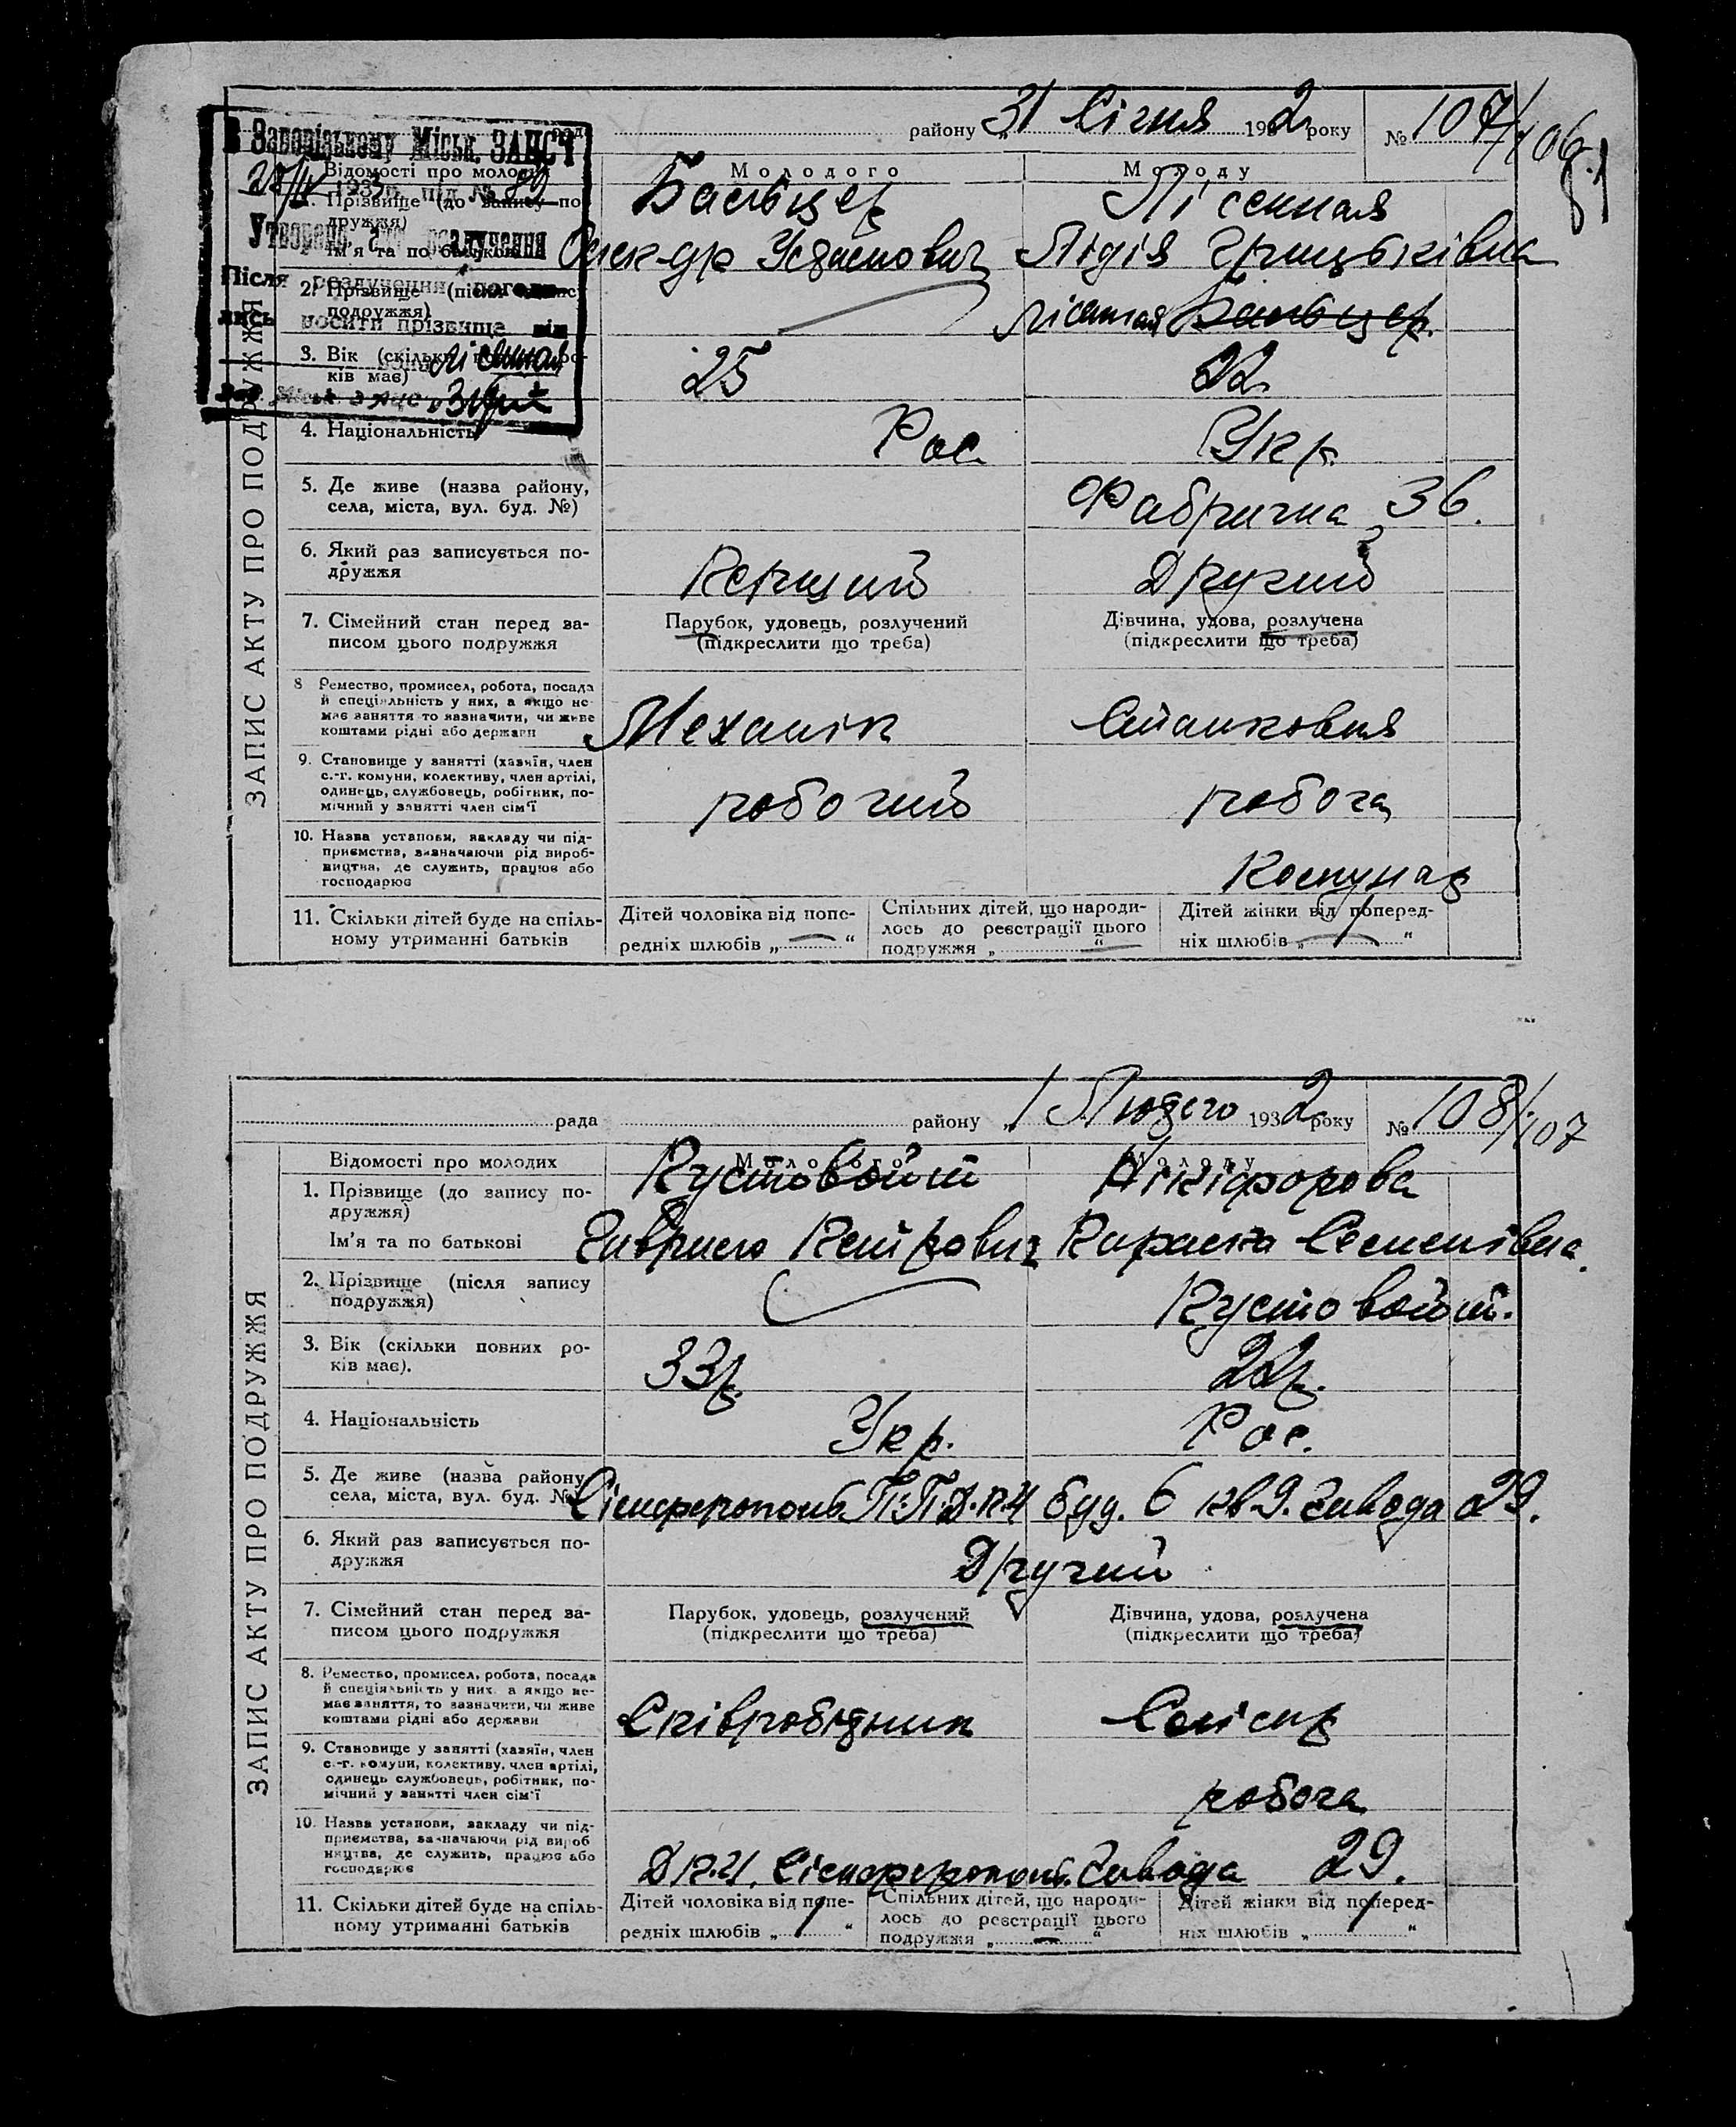 району „31 Січня 1932 року № 107/106
В Запорізькому Міськ. ЗАГСІ
193 р. під №
Утворено акт розлучення
Після розлучення погоди-
лись носити прізвище він
вона Лісенная
Зав. Міськ. ЗАГС
Відомості про молодих Молодого Молоду
1. Прізвище (до запису по-
дружжя) Бальцер Лісенная
Ім'я та по батькові Олек-др Лідія Грицьківна
2. Прізвище (після запису
подружжя) Лісенная Бальцер.
3. Вік (скільки повних ро-
ків має) 25 22
4. Національність Рос. Укр.
5. Де живе (назва району,
села, міста, вул. буд. №) Фабрична 36.
6. Який раз записується по-
дружжя Перший Другий
7. Сімейний стан перед за-
писом цього подружжя Парубок, удовець, розлучений Дівчина, удова, розлучена
(підкреслити що треба) (підкреслити що треба)
8 Ремество, промисел, робота, посада
й спеціяльність у них, а якщо не-
має заняття то зазначити, чи живе
коштами рідні або держави Механік Станковня
9. Становище у занятті (хазяїн, член
с.-г. комуни, колективу, член артілі,
одинець, службовець, робітник, по-
мічний у занятті член сім'ї робочий робоча
10. Назва установи, закладу чи під-
приємства, зазначаючи рід вироб-
ництва, де служить, працює або
господарює Комунар
11. Скільки дітей буде на спіль-
ному утриманні батьків
Дітей чоловіка від попе-
редніх шлюбів „ “
Спільних дітей, що народи-
лось до реєстрації цього
подружжя „ “
Дітей жінки від поперед-
ніх шлюбів „ “
ЗАПИС АКТУ ПРО ПОДРУЖЖЯ
рада району „1 Лютого 1932 року № 108/107
Відомості про молодих Молодого Молоду
1. Прізвище (до запису по-
дружжя) Пустовойт Нікіфорова
Ім'я та по батькові Гаврило Петрович Параска Семенівна.
2. Прізвище (після запису
подружжя) Пустовойт.
3. Вік (скільки повних ро-
ків має). 33р. 22р.
4. Національність Укр. Рос.
5. Де живе (назва району
села, міста, вул. буд. №) Сімферополь П.П.Д.П.У буд. 6 кв 9. Завода 29.
6. Який раз записується по-
дружжя Другий
7. Сімейний стан перед за-
писом цього подружжя Парубок, удовець, розлучений Дівчина, удова, розлучена
(підкреслити що треба) (підкреслити що треба)
8. Ремество, промисел, робота, посада
й спеціяльність у них, а якщо не-
має заняття, то зазначити, чи живе
коштами рідні або держави Співробітник
9. Становище у занятті (хазяїн, член
с.-г. комуни, колективу, член артілі,
одинець службовець, робітник, по-
мічний у занятті член сім'ї робоча
10. Назва установи, закладу чи під-
приємства, зазначаючи рід вироб
ництва, де служить, працює або
господарює Д.П.У. Сімферополь. Завода 29.
11. Скільки дітей буде на спіль-
ному утриманні батьків
Дітей чоловіка від попе-
редніх шлюбів „ “
Спільних дітей, що народи-
лось до реєстрації цього
подружжя „ “
Дітей жінки від поперед-
ніх шлюбів „ “
ЗАПИС АКТУ ПРО ПОДРУЖЖЯ